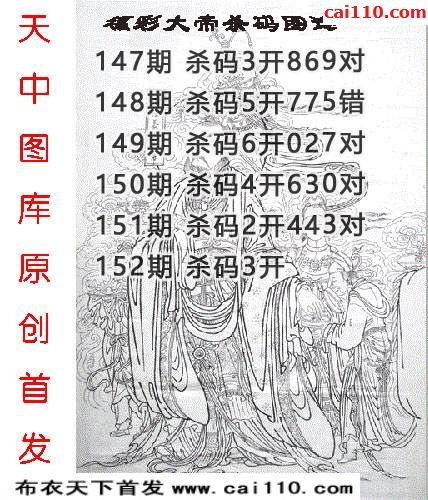 cai110.com
彩大帝杀码图
147期 杀码3开869对
148期 杀码5开775错
149期 杀码6开027对
150期 杀码4开630对
151期 杀码2开443对
152期 杀码3开
天中图库原创首发
布衣天下首发 www.cai110.com